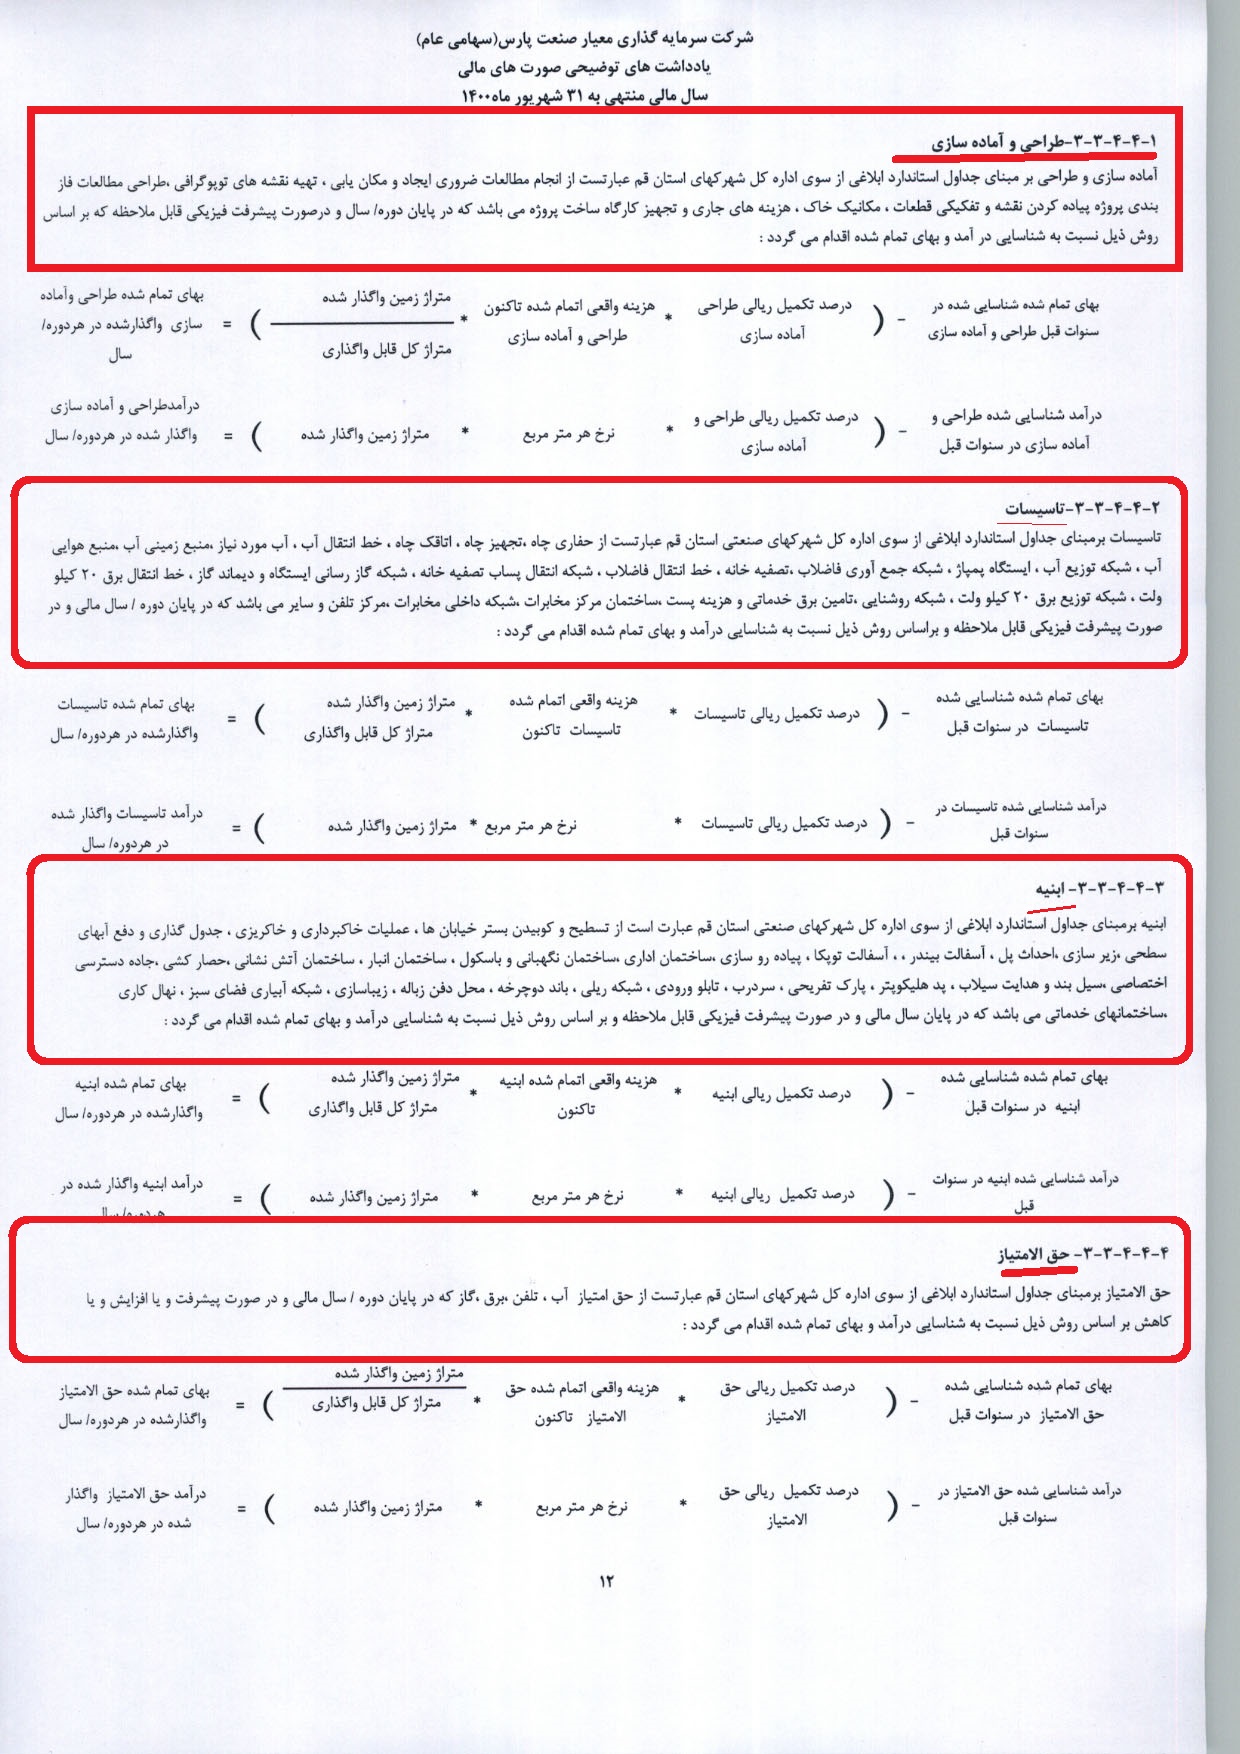 شرکت سرمایه گذاری معیار صنعت پارس(سهامی عام)
یادداشت های توضیحی صورت های مالی
سال مالی منتهی به ۳۱ شهریور ماه۱۴۰۰
۳-۳-۴-۴-۱-طراحی و آماده سازی
آماده سازی و طراحی بر مبنای جداول استاندارد ابلاغی از سوی اداره کل شهرکهای استان قم عبارتست از انجام مطالعات ضروری ایجاد و مکان یابی ، تهیه نقشه های توپوگرافی ،طراحی مطالعات فاز
بندی پروژه پیاده کردن نقشه و تفکیکی قطعات ، مکانیک خاک ، هزینه های جاری و تجهیز کارگاه ساخت پروژه می باشد که در پایان دوره/ سال و درصورت پیشرفت فیزیکی قابل ملاحظه که بر اساس
روش ذیل نسبت به شناسایی در آمد و بهای تمام شده اقدام می گردد :
بهای تمام شده شناسایی شده در سنوات قبل طراحی و آماده سازی - ( درصد تکمیل ریالی طراحی آماده سازی * هزینه واقعی اتمام شده تاکنون طراحی و آماده سازی * متراژ زمین واگذار شده متراژ کل قابل واگذاری ) = بهای تمام شده طراحی وآماده سازی واگذارشده در هردوره/ سال
درآمد شناسایی شده طراحی و آماده سازی در سنوات قبل - ( درصد تکمیل ریالی طراحی و آماده سازی * نرخ هر متر مربع * متراژ زمین واگذار شده ) = درآمدطراحی و آماده سازی واگذار شده در هردوره/ سال
۳-۳-۴-۴-۲-تاسیسات
تاسیسات برمبنای جداول استاندارد ابلاغی از سوی اداره کل شهرکهای صنعتی استان قم عبارتست از حفاری چاه ،تجهیز چاه ، اتاقک چاه ، خط انتقال آب ، آب مورد نیاز ،منبع زمینی آب ،منبع هوایی
آب ، شبکه توزیع آب ، ایستگاه پمپاژ ، شبکه جمع آوری فاضلاب ،تصفیه خانه ، خط انتقال فاضلاب ، شبکه انتقال پساب تصفیه خانه ، شبکه گاز رسانی ایستگاه و دیماند گاز ، خط انتقال برق ۲۰ کیلو
ولت ، شبکه توزیع برق ۲۰ کیلو ولت ، شبکه روشنایی ،تامین برق خدماتی و هزینه پست ،ساختمان مرکز مخابرات ،شبکه داخلی مخابرات ،مرکز تلفن و سایر می باشد که در پایان دوره / سال مالی و در
صورت پیشرفت فیزیکی قابل ملاحظه و براساس روش ذیل نسبت به شناسایی درآمد و بهای تمام شده اقدام می گردد :
بهای تمام شده شناسایی شده تاسیسات در سنوات قبل - ( درصد تکمیل ریالی تاسیسات * هزینه واقعی اتمام شده تاسیسات تاکنون * متراژ زمین واگذار شده متراژ کل قابل واگذاری ) = بهای تمام شده تاسیسات واگذارشده در هردوره/ سال
درآمد شناسایی شده تاسیسات در سنوات قبل - ( درصد تکمیل ریالی تاسیسات * نرخ هر متر مربع * متراژ زمین واگذار شده ) = درآمد تاسیسات واگذار شده در هردوره/ سال
۳-۳-۴-۴-۳- ابنیه
ابنیه برمبنای جداول استاندارد ابلاغی از سوی اداره کل شهرکهای صنعتی استان قم عبارت است از تسطیح و کوبیدن بستر خیابان ها ، عملیات خاکبرداری و خاکریزی ، جدول گذاری و دفع آبهای
سطحی ،زیر سازی ،احداث پل ، آسفالت بیندر ، ، آسفالت توپکا ، پیاده رو سازی ،ساختمان اداری ،ساختمان نگهبانی و باسکول ، ساختمان انبار ، ساختمان آتش نشانی ،حصار کشی ،جاده دسترسی
اختصاصی ،سیل بند و هدایت سیلاب ، پد هلیکوپتر ، پارک تفریحی ، سردرب ، تابلو ورودی ، شبکه ریلی ، باند دوچرخه ، محل دفن زباله ، زیباسازی ، شبکه آبیاری فضای سبز ، نهال کاری
،ساختمانهای خدماتی می باشد که در پایان سال مالی و در صورت پیشرفت فیزیکی قابل ملاحظه و بر اساس روش ذیل نسبت به شناسایی درآمد و بهای تمام شده اقدام می گردد :
بهای تمام شده شناسایی شده ابنیه در سنوات قبل - ( درصد تکمیل ریالی ابنیه * هزینه واقعی اتمام شده ابنیه تاکنون * متراژ زمین واگذار شده متراژ کل قابل واگذاری ) = بهای تمام شده ابنیه واگذارشده در هردوره/ سال
درآمد شناسایی شده ابنیه در سنوات قبل - ( درصد تکمیل ریالی ابنیه * نرخ هر متر مربع * متراژ زمین واگذار شده ) = درآمد ابنیه واگذار شده در هردوره/ سال
۳-۳-۴-۴-۴- حق الامتیاز
حق الامتیاز برمبنای جداول استاندارد ابلاغی از سوی اداره کل شهرکهای استان قم عبارتست از حق امتیاز آب ، تلفن ،برق ،گاز که در پایان دوره / سال مالی و در صورت پیشرفت و یا افزایش و یا
کاهش بر اساس روش ذیل نسبت به شناسایی درآمد و بهای تمام شده اقدام می گردد :
بهای تمام شده شناسایی شده حق الامتیاز در سنوات قبل - ( درصد تکمیل ریالی حق الامتیاز * هزینه واقعی اتمام شده حق الامتیاز تاکنون * متراژ زمین واگذار شده متراژ کل قابل واگذاری ) = بهای تمام شده حق الامتیاز واگذارشده در هردوره/ سال
درآمد شناسایی شده حق الامتیاز در سنوات قبل - ( درصد تکمیل ریالی حق الامتیاز * نرخ هر متر مربع * متراژ زمین واگذار شده ) = درآمد حق الامتیاز واگذار شده در هردوره/ سال
۱۲